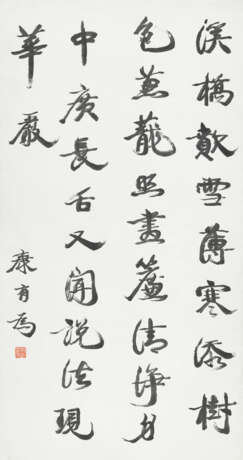 溪橋歕雪薄寒添樹
色葱蘢照畫簾清淨身
中廣長舌又聞說法現
華嚴
康有為